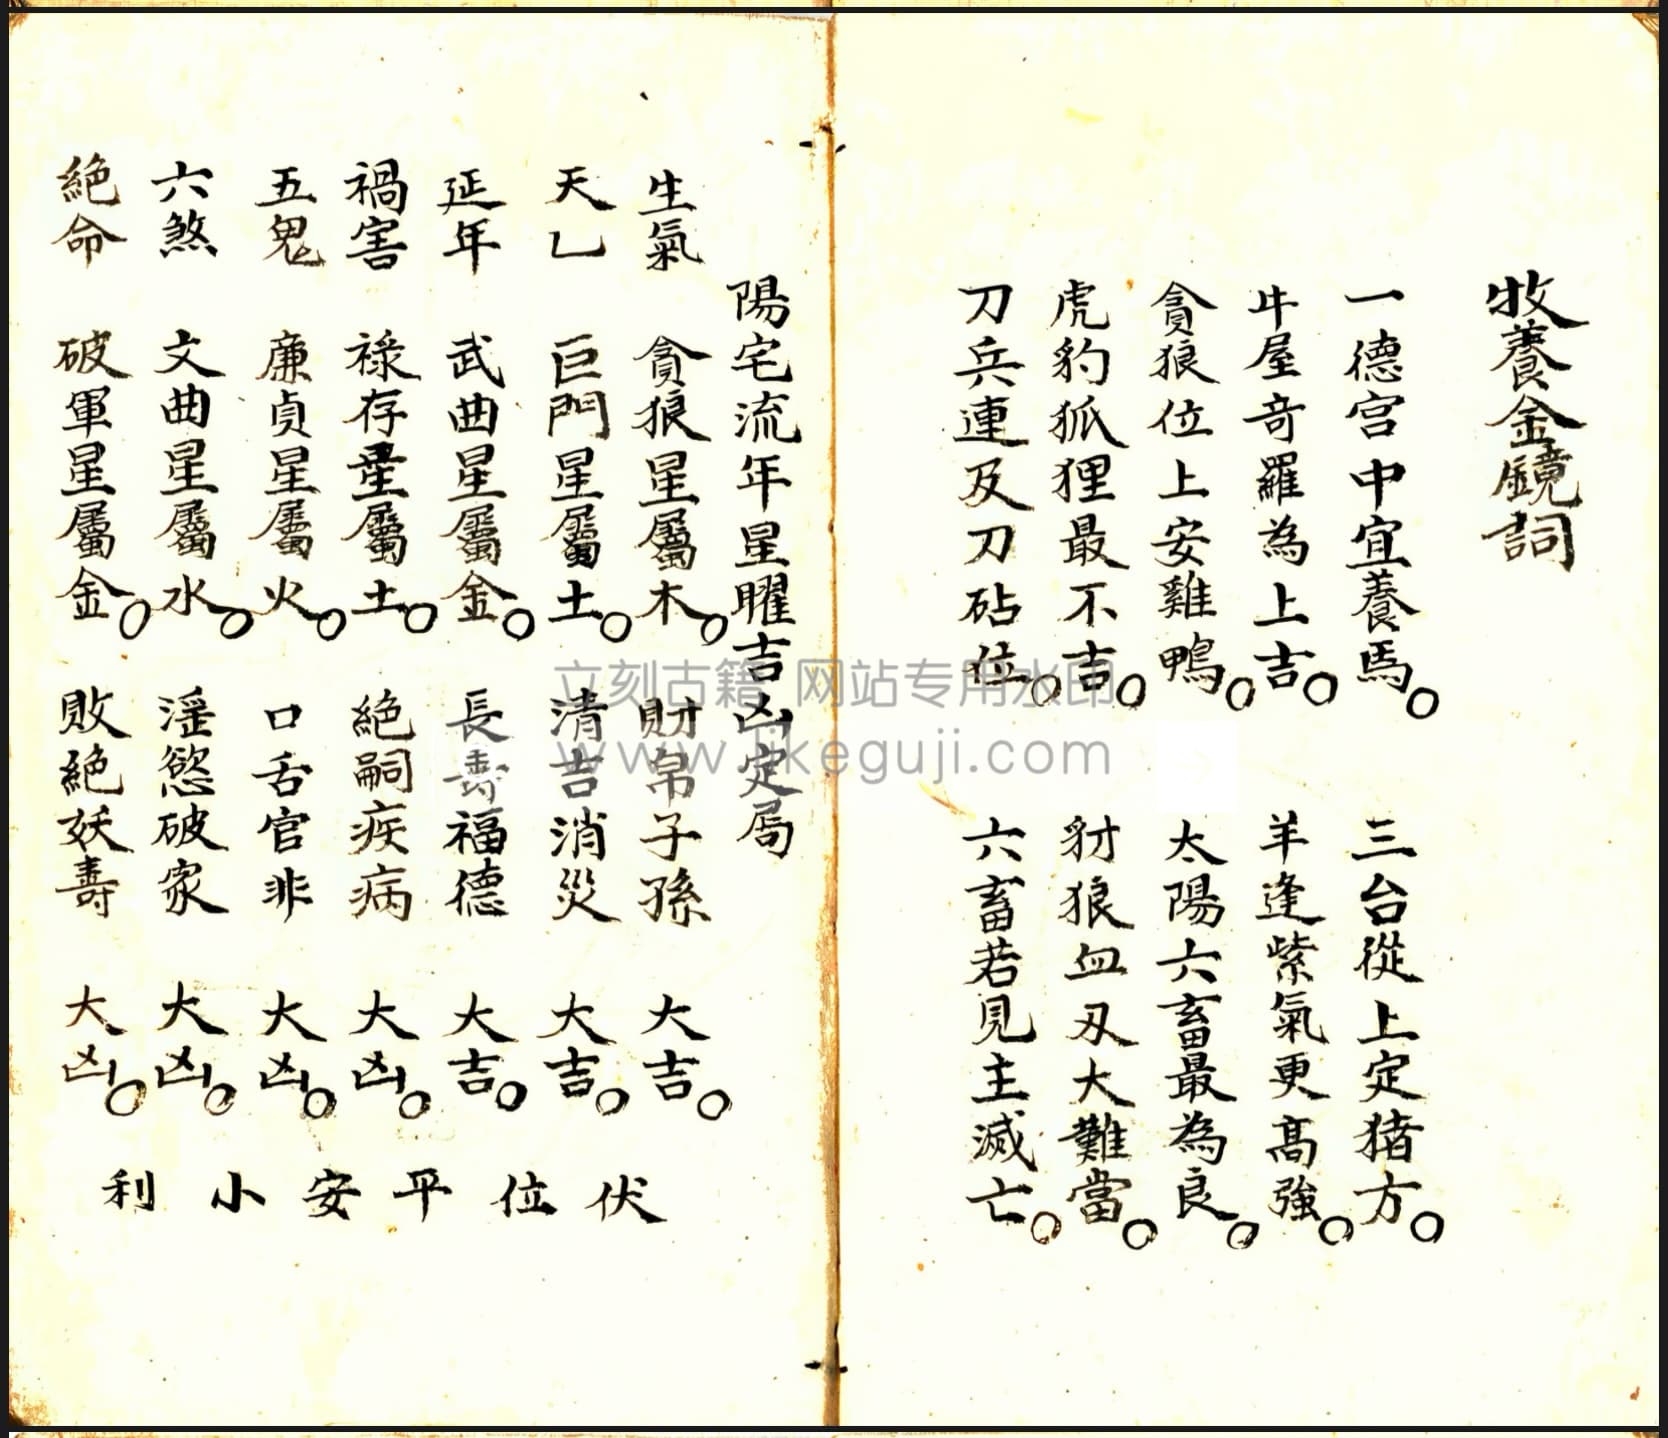 牧養金鏡詞
一德宮中宜養馬○ 三台從上定猪方○
牛屋奇羅為上吉○ 羊逢紫氣更高強○
貪狼位上安雞鴨○ 太陽六畜最為良○
虎豹狐狸最不吉○ 豺狼血刃大難當○
刀兵連及刀砧位○ 六畜若見主滅亡○
陽宅流年星曜吉凶定局
生氣 貪狼星屬木○ 財帛子孫 大吉○
天乙 巨門星屬土○ 清吉消災 大吉○
延年 武曲星屬金○ 長壽福德 大吉○
禍害 祿存星屬土○ 絕嗣疾病 大凶○
五鬼 廉貞星屬火○ 口舌官非 大凶○
六煞 文曲星屬水○ 淫慾破家 大凶○
絕命 破軍星屬金○ 敗絕妖壽 大凶○
伏位平安小利
立刻古籍 网站专用水印
www.likeguji.com